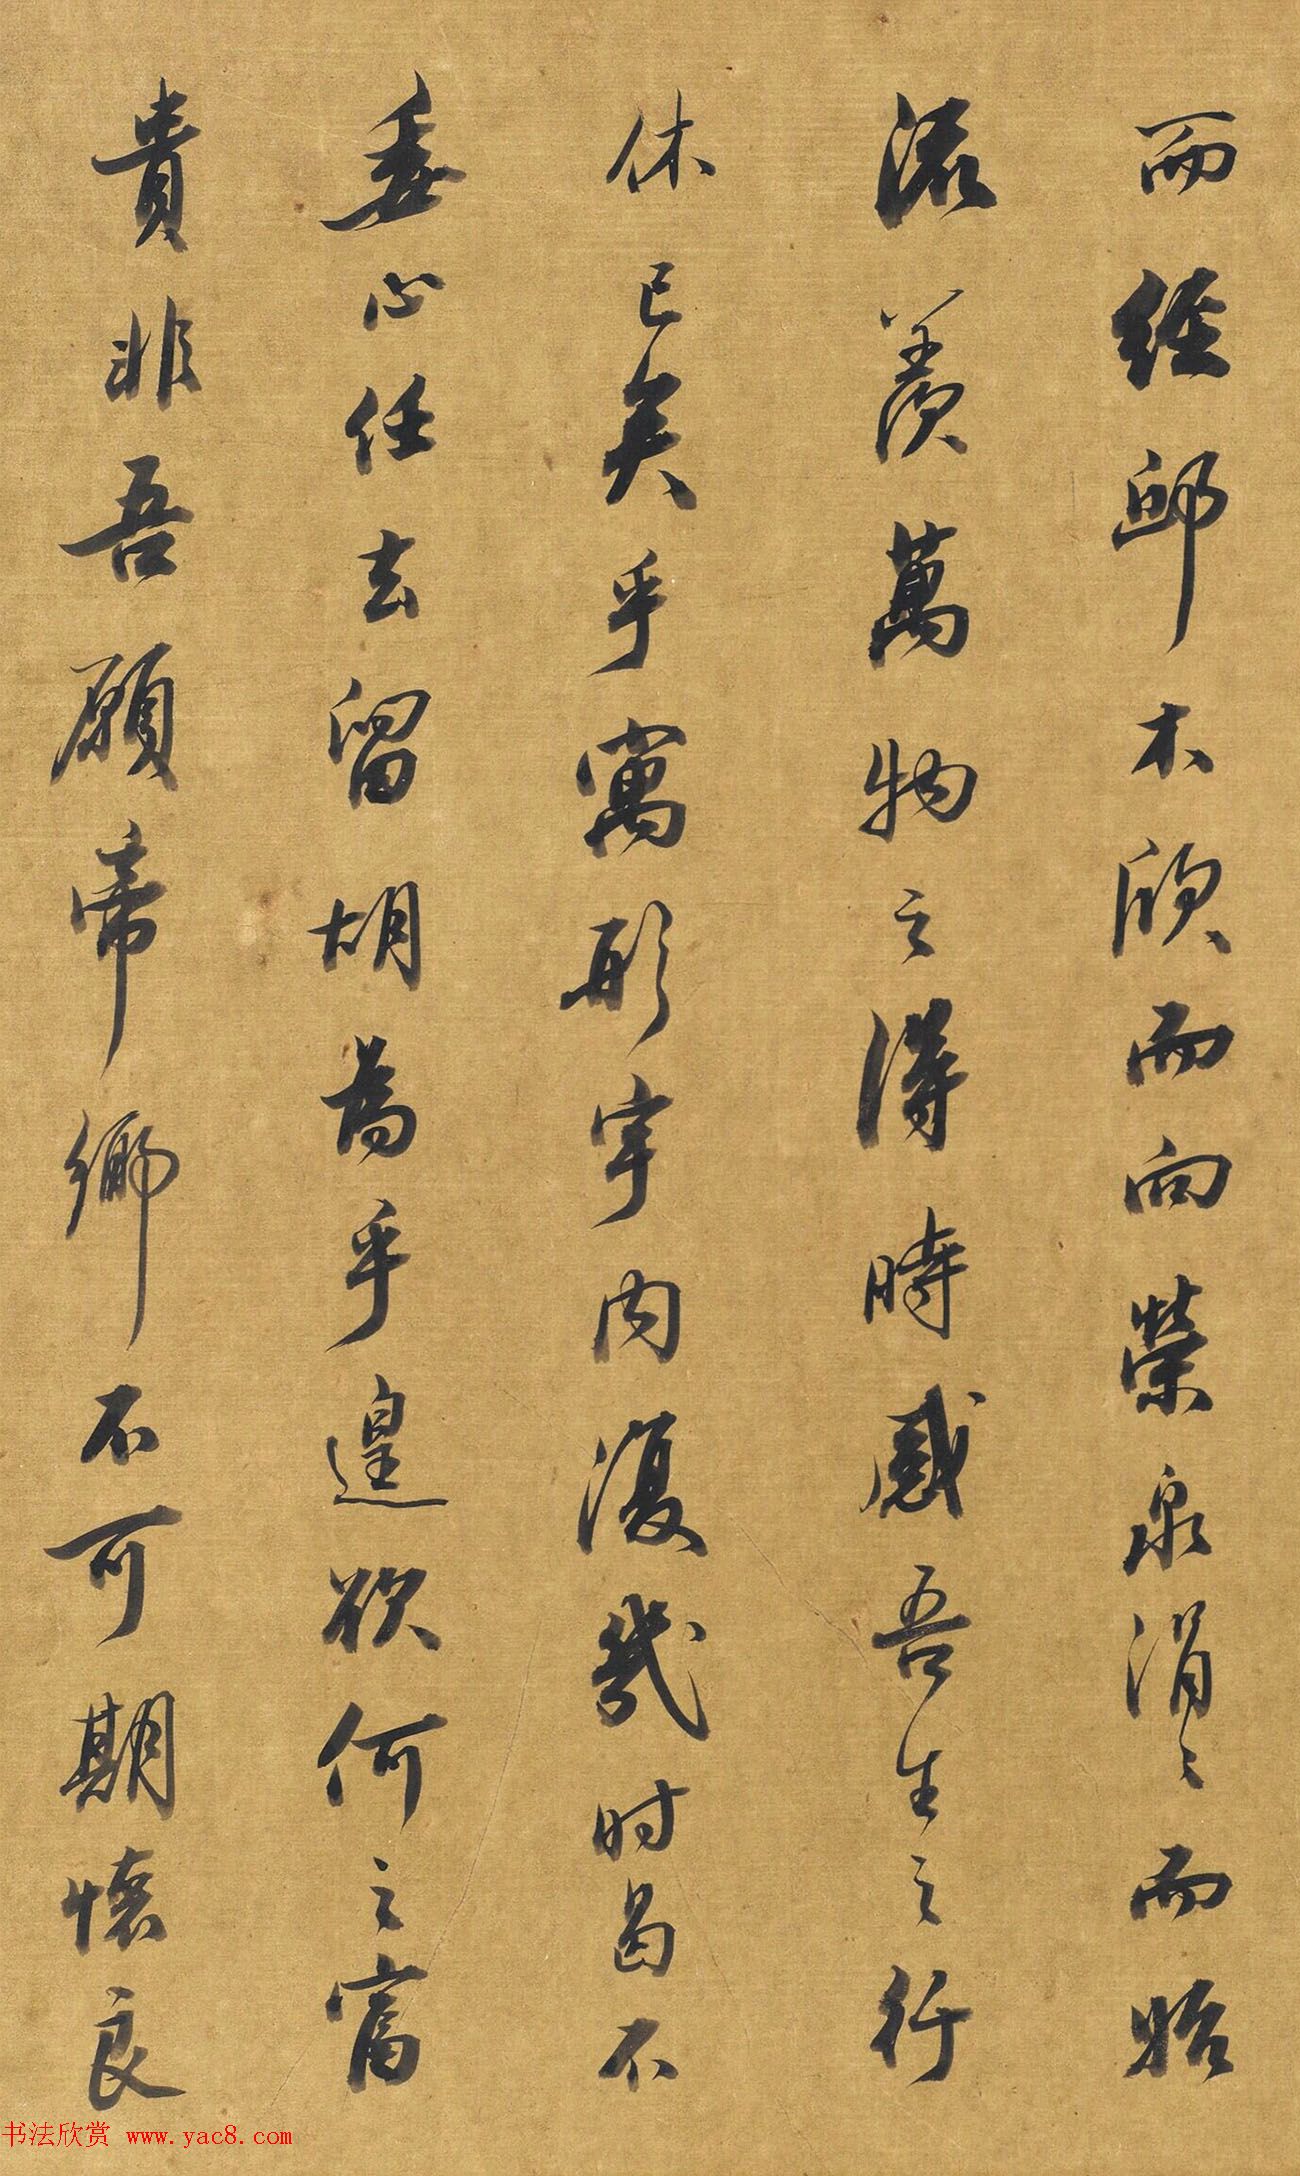 而經邱木欣而向榮泉涓〻而始
流羨萬物之得時感吾生之行
休已矣乎寓形宇内復幾时曷不
委心任去留胡為乎遑欲何之富
貴非吾願帝鄉不可期懷良
书法欣赏 www.yac8.com